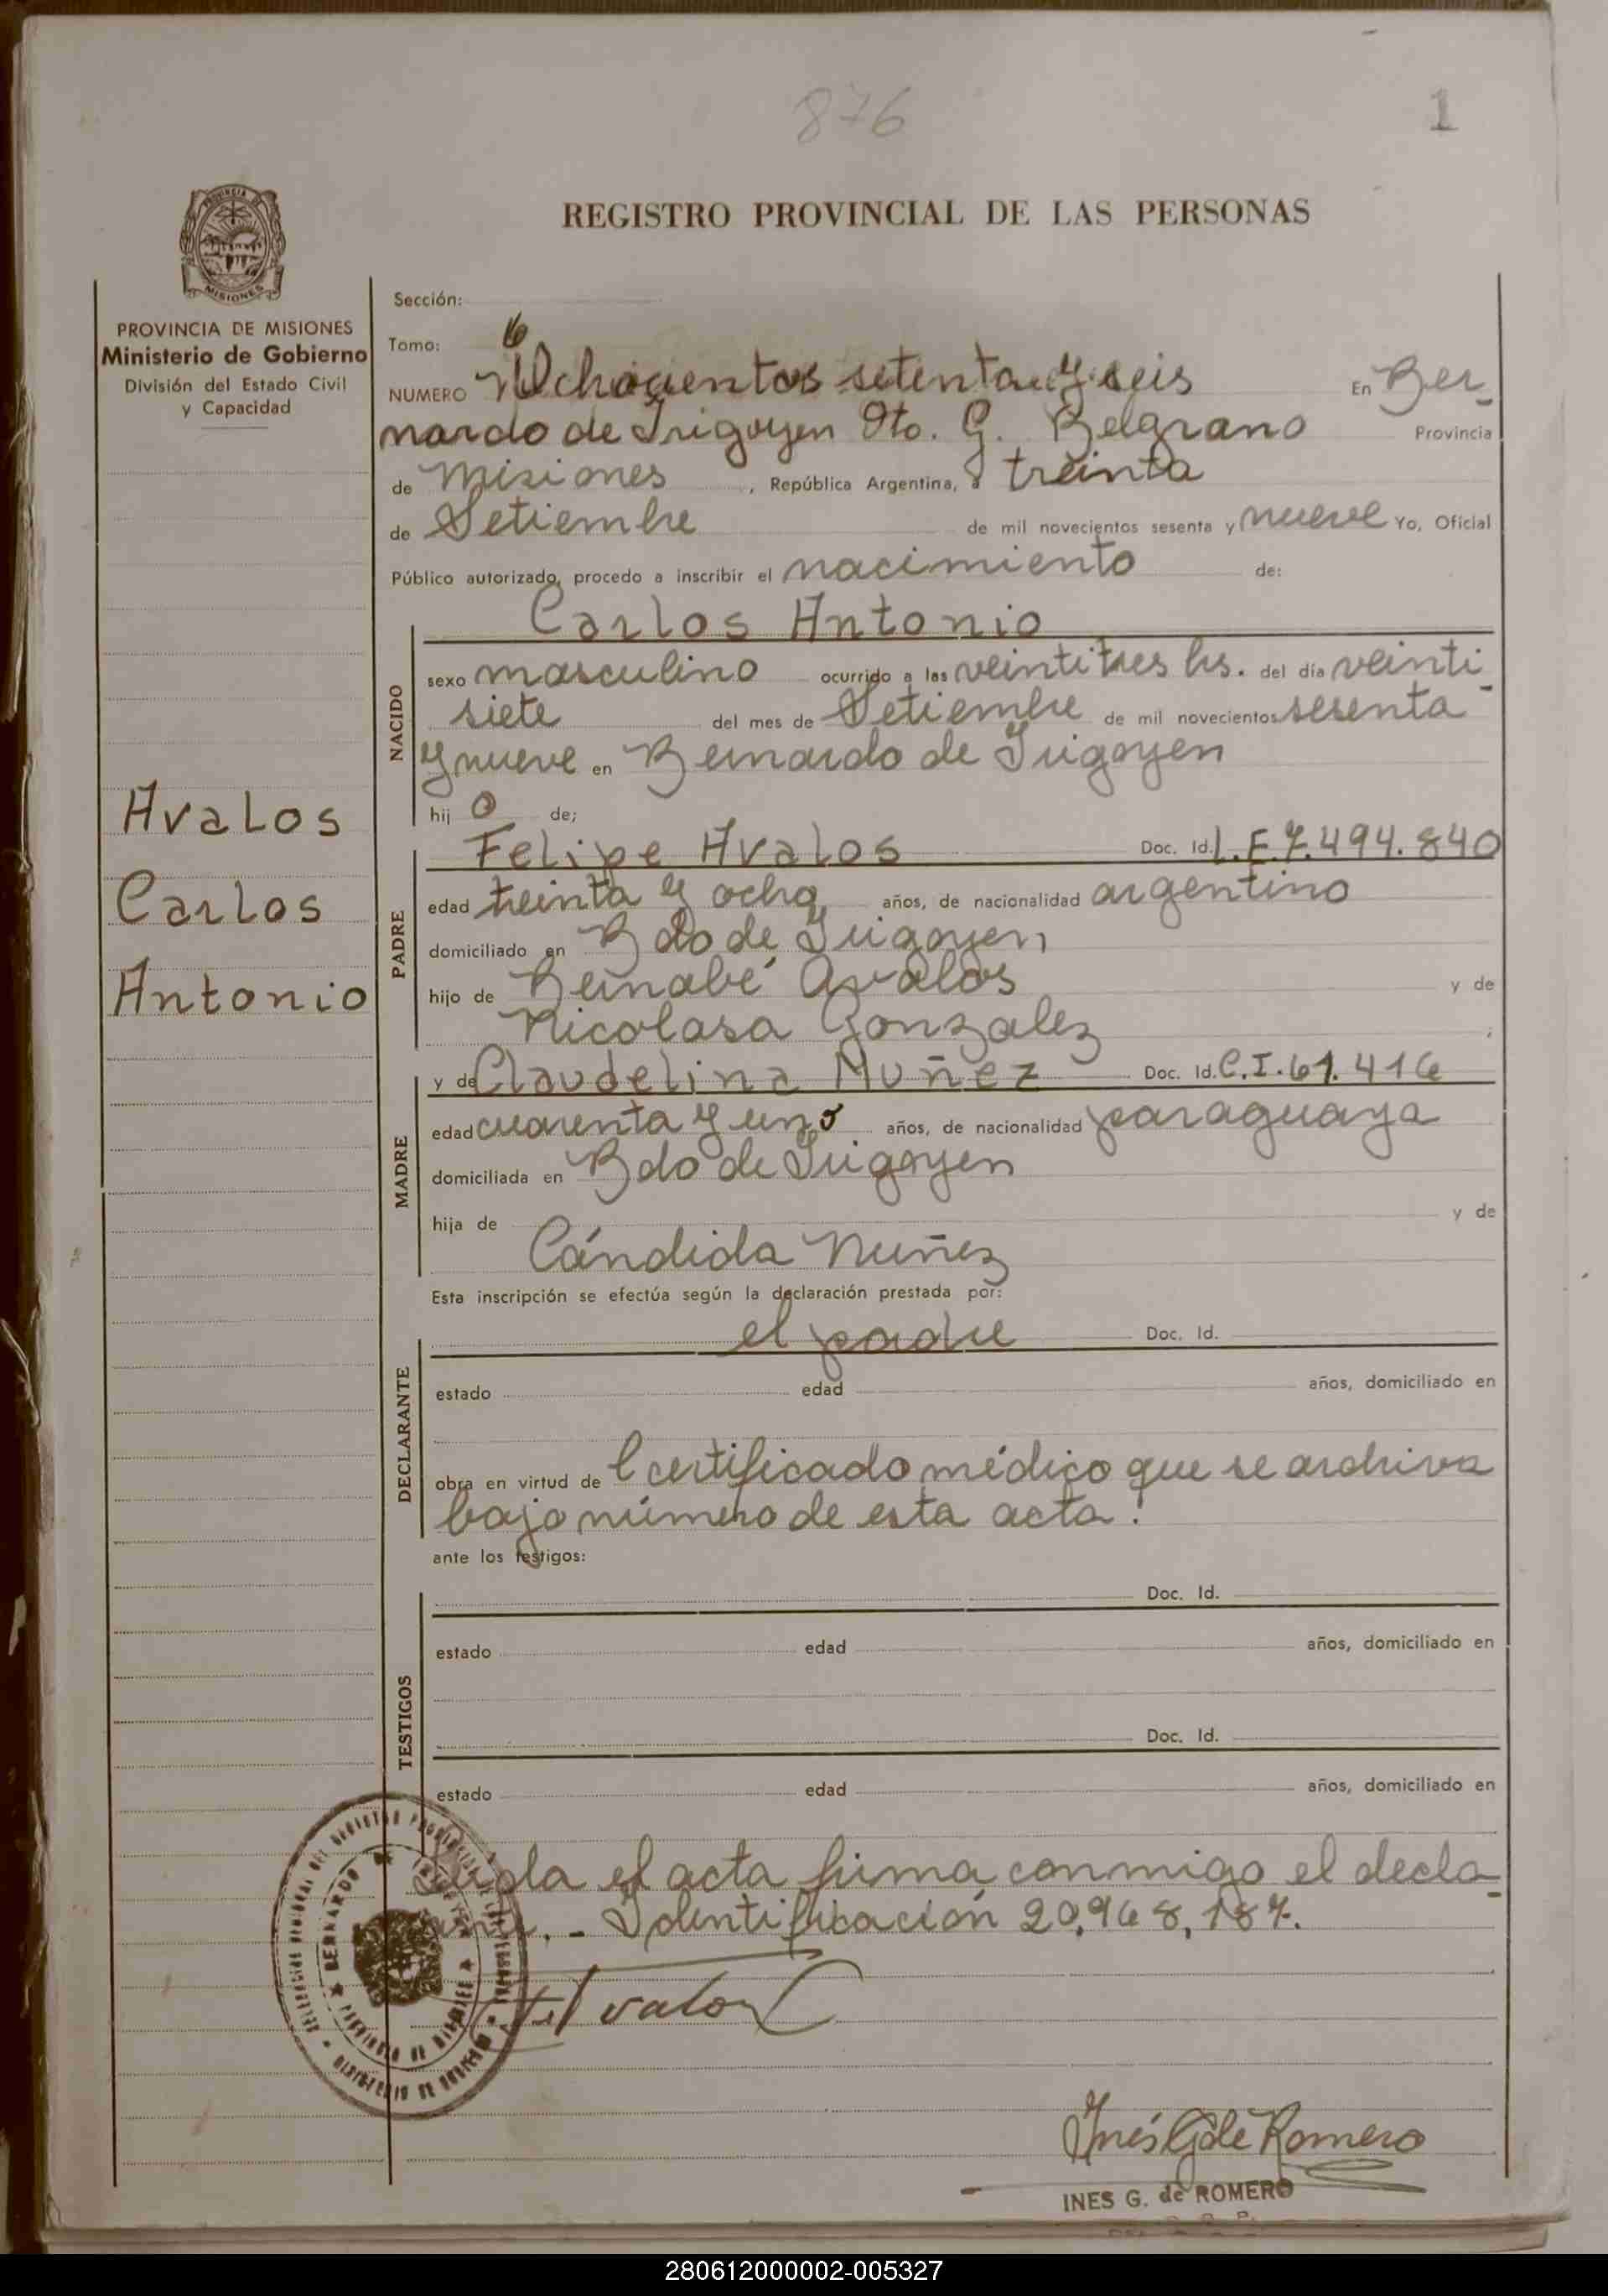 876
1
REGISTRO PROVINCIAL DE LAS PERSONAS
MISIONES
PROVINCIA DE MISIONES
Ministerio de Gobierno
División del Estado Civil
y Capacidad
Avalos
Carlos
Antonio
Sección:
Tomo: 6
NUMERO Ochocientos setenta y seis En Ber-
nardo de Irigoyen Dto. G. Belgrano Provincia
de Misiones, República Argentina, a treinta
de Setiembre de mil novecientos sesenta y nueve Yo, Oficial
Público autorizado, procedo a inscribir el nacimiento de:
Carlos Antonio
NACIDO
sexo masculino ocurrido a las veintitres hs. del día veinti-
siete del mes de Setiembre de mil novecientos sesenta
y nueve en Bernardo de Irigoyen
hijo de;
PADRE
Felipe Avalos Doc. Id. L.E.7.494.840
edad treinta y ocho años, de nacionalidad argentino
domiciliado en Bdo de Irigoyen
hijo de Bernabé Avalos y de
Nicolasa Gonzalez ;
MADRE
y de Claudelina Nuñez Doc. Id. C.I.61.416
edad cuarenta y uno años, de nacionalidad paraguaya
domiciliada en Bdo de Irigoyen
hija de y de
Cándida Nuñez
Esta inscripción se efectúa según la declaración prestada por:
DECLARANTE
el padre Doc. Id.
estado edad años, domiciliado en
obra en virtud de l certificado médico que se archiva
bajo número de esta acta.
ante los testigos:
TESTIGOS
Doc. Id.
estado edad años, domiciliado en
Doc. Id.
estado edad años, domiciliado en
Leída el acta firma conmigo el decla-
rante. - Identificación 20.968.187.
BERNARDO DE
PROVINCIA DE MISIONES
Inés G de Romero
INES G. de ROMERO
280612000002-005327